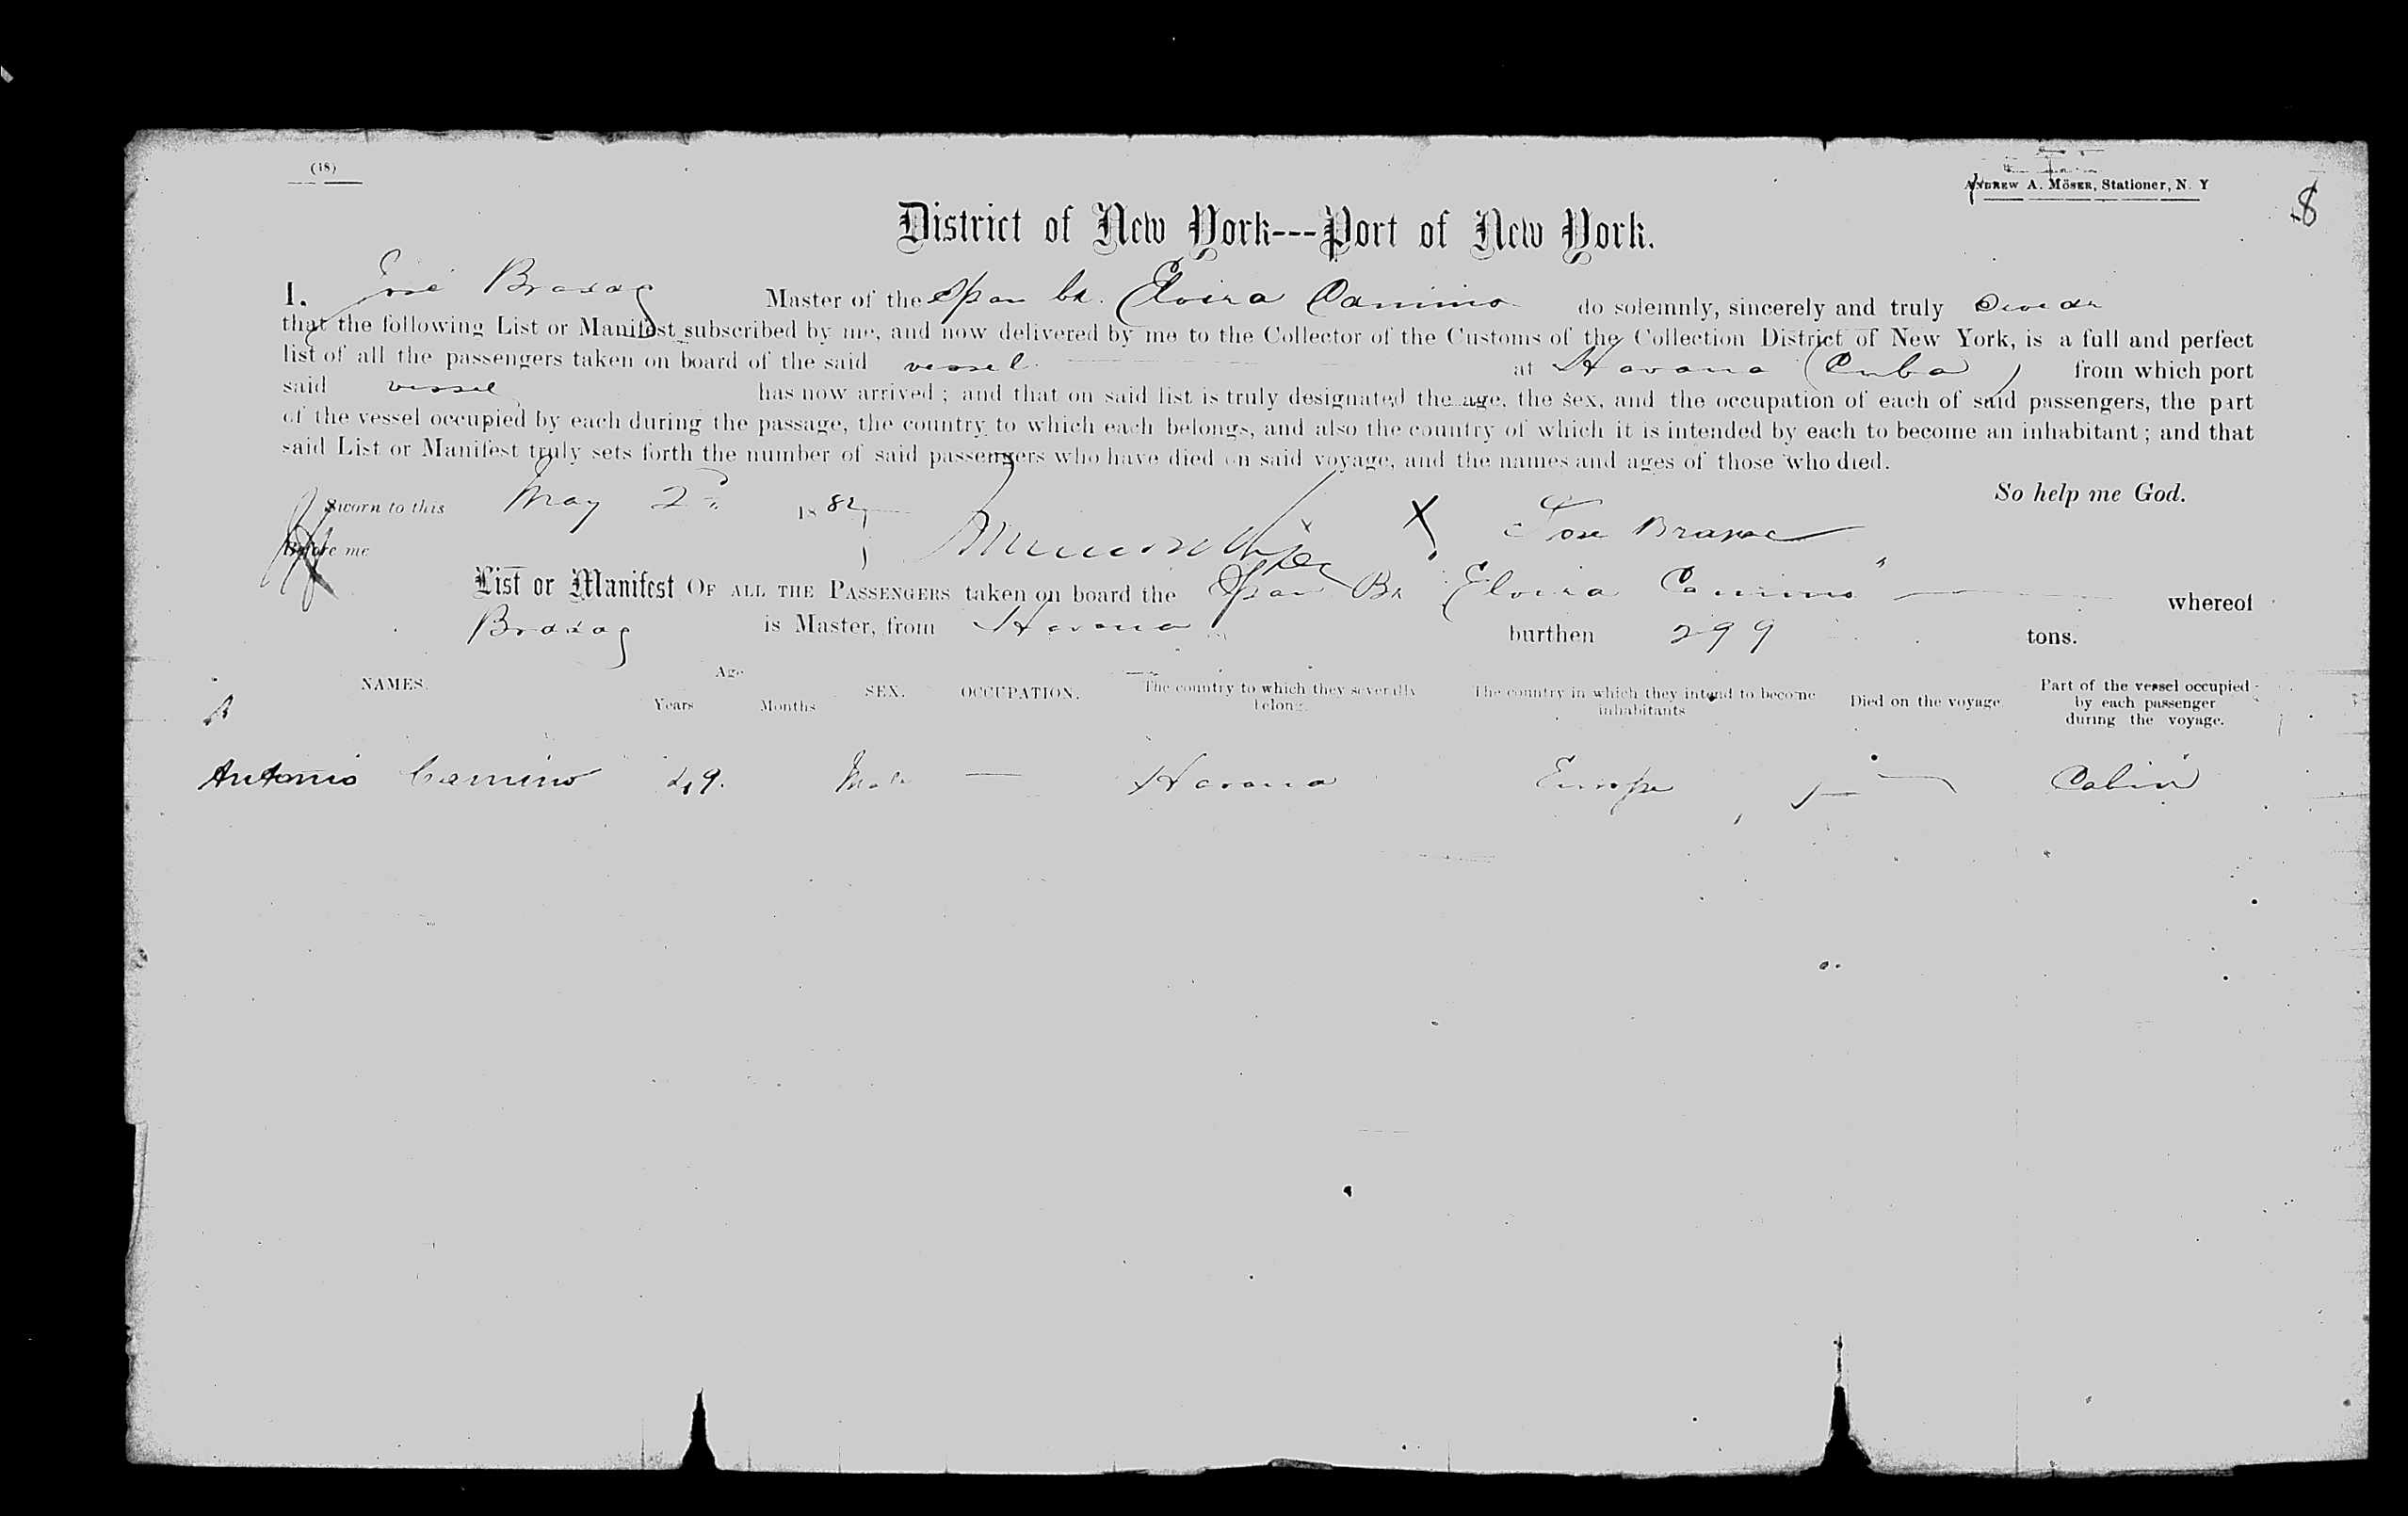 (18)
ANDREW A. MÖSER, Stationer, N. Y
8
District of New York---Port of New York.
I, José Master of the Span bk. Elvira Camino do solemnly, sincerely and truly
that the following List or Manifest subscribed by me, and now delivered by me to the Collector of the Customs of the Collection District of New York, is a full and perfect
list of all the passengers taken on board of the said vessel at Havana (Cuba) from which port
said vessel has now arrived; and that on said list is truly designated the age, the sex, and the occupation of each of said passengers, the part
of the vessel occupied by each during the passage, the country to which each belongs, and also the country of which it is intended by each to become an inhabitant; and that
said List or Manifest truly sets forth the number of said passengers who have died on said voyage, and the names and ages of those who died.
So help me God.
Sworn to this May 2d 1882
X Jose
Before me
List or Manifest OF ALL THE PASSENGERS taken on board the Span Bk "Elvira Camino" whereof
is Master, from Havana burthen 299 tons.
NAMES. Age Years Months SEX. OCCUPATION. The country to which they severally belong. The country in which they intend to become inhabitants Died on the voyage. Part of the vessel occupied by each passenger during the voyage.
Antonio Camino 49. Male — Havana Europe — Cabin